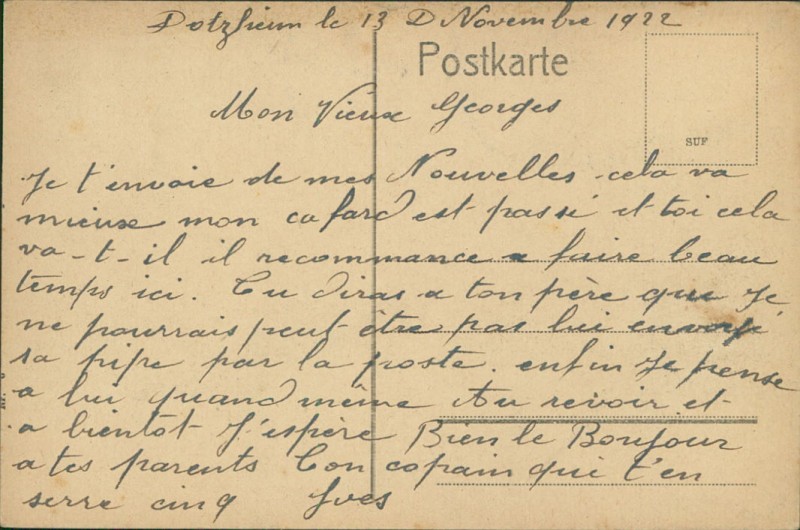 Dotzheim le 13 D Novembre 1922
Postkarte
Mon Vieux Georges
SUF
Je t'envoie de mes Nouvelles cela va
mieux mon cafard est passé et toi cela
va-t-il il recommance a faire beau
temps ici. Tu diras a ton père que Je
ne pourrais peut être pas lui envoyé
sa pipe par la poste. enfin Je pense
a lui quand même Au revoir et
a bientot J'espère Bien le Bonjour
a tes parents Ton copain qui t'en
serre cinq Yves